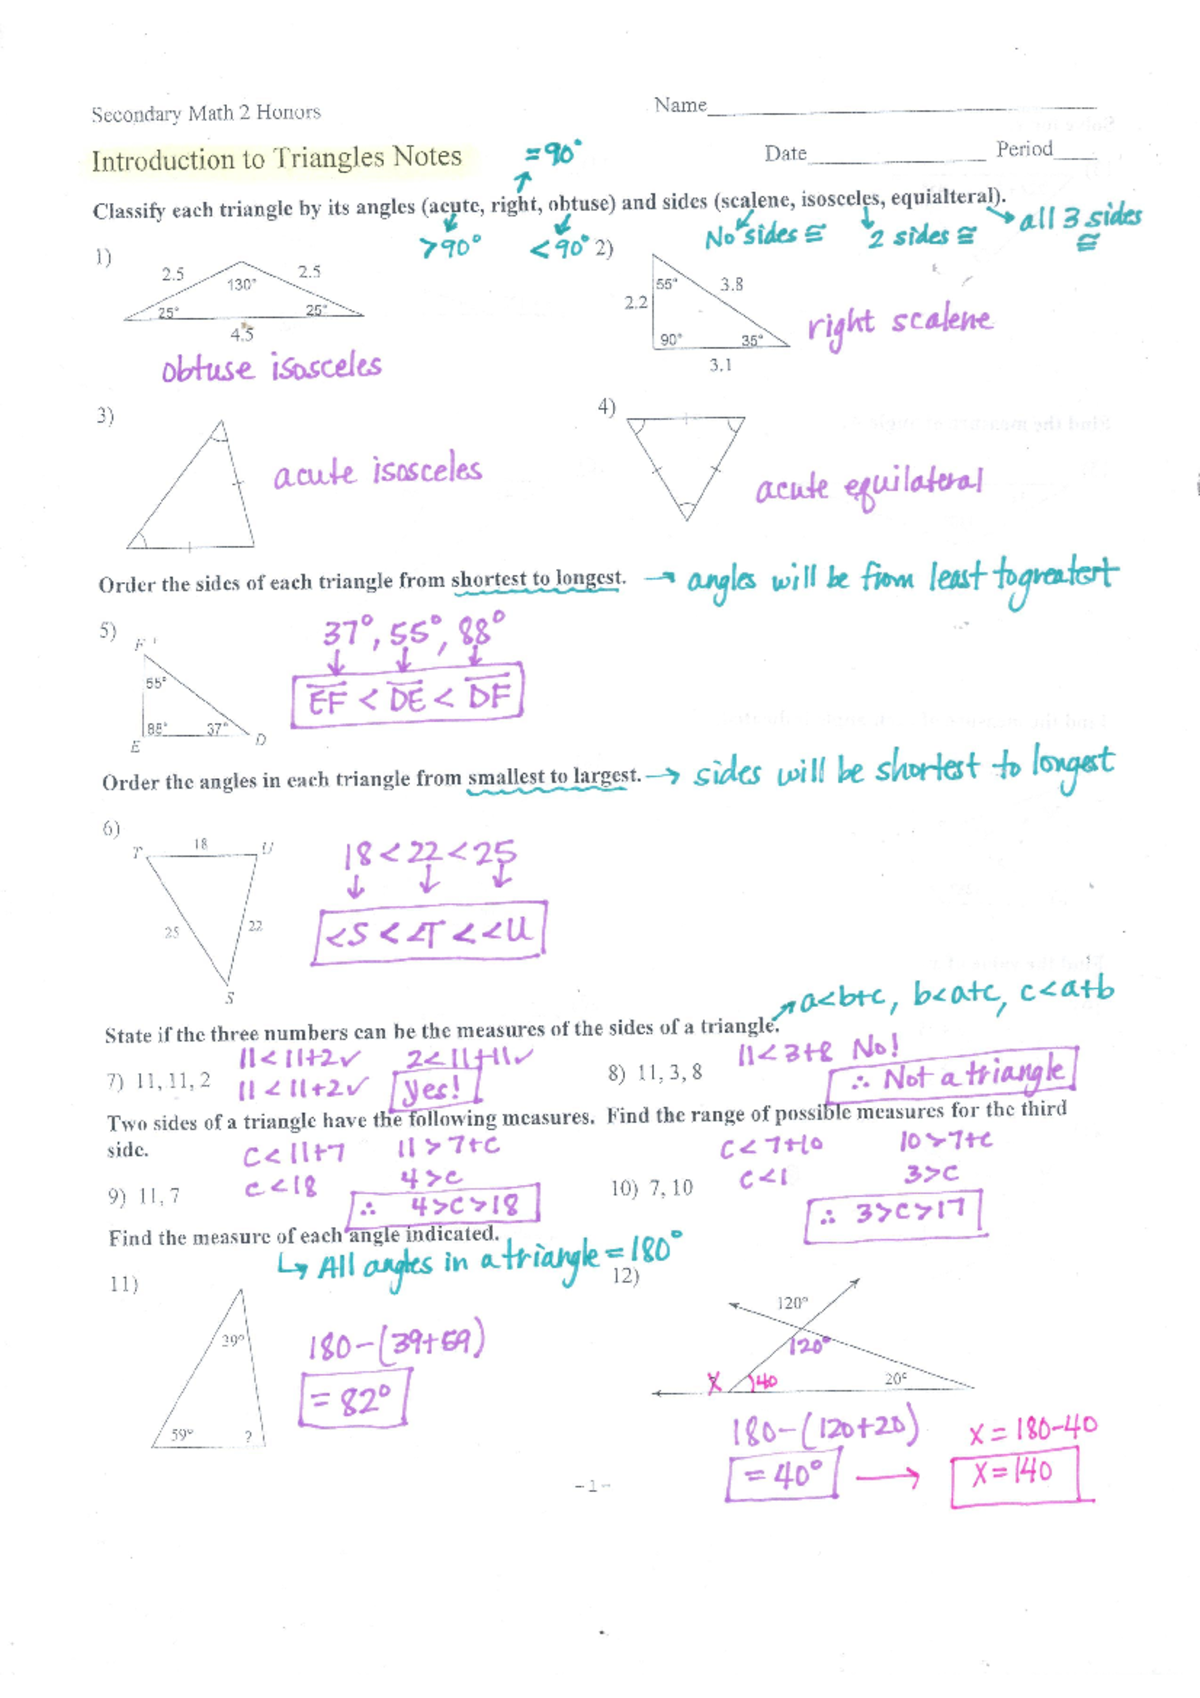 Secondary Math 2 Honors
Name
Introduction to Triangles Notes
= 90°
Date Period
Classify each triangle by its angles (acute, right, obtuse) and sides (scalene, isosceles, equialteral).
>90° <90° No sides ≅ 2 sides ≅ all 3 sides ≅
1)
2.5 2.5
130°
25° 25°
4.5
obtuse isosceles
2)
55° 3.8
2.2
90° 35°
3.1
right scalene
3)
acute isosceles
4)
acute equilateral
Order the sides of each triangle from shortest to longest. → angles will be from least to greatest
5)
F
55°
37°
E D
37°, 55°, 88°
EF < DE < DF
Order the angles in each triangle from smallest to largest. → sides will be shortest to longest
6)
T 18 U
25 22
S
18 < 22 < 25
<S < ∠T < <U
a<b+c, b<a+c, c<a+b
State if the three numbers can be the measures of the sides of a triangle.
11 < 11+2✓ 2<11+11✓
7) 11, 11, 2 11 < 11+2✓ Yes!
11<3+8 No!
8) 11, 3, 8 ∴ Not a triangle
Two sides of a triangle have the following measures. Find the range of possible measures for the third
side.
c<11+7 11 > 7+c
c<18 4>c
9) 11, 7 ∴ 4>c>18
c< 7+10 10>7+c
c<1 3>c
10) 7, 10 ∴ 3>c>17
Find the measure of each angle indicated.
↳ All angles in a triangle = 180°
11)
39°
59° ?
180-(39+59)
= 82°
12)
120°
120°
x 40 20°
180-(120+20) x = 180-40
= 40° → x=140
-1-